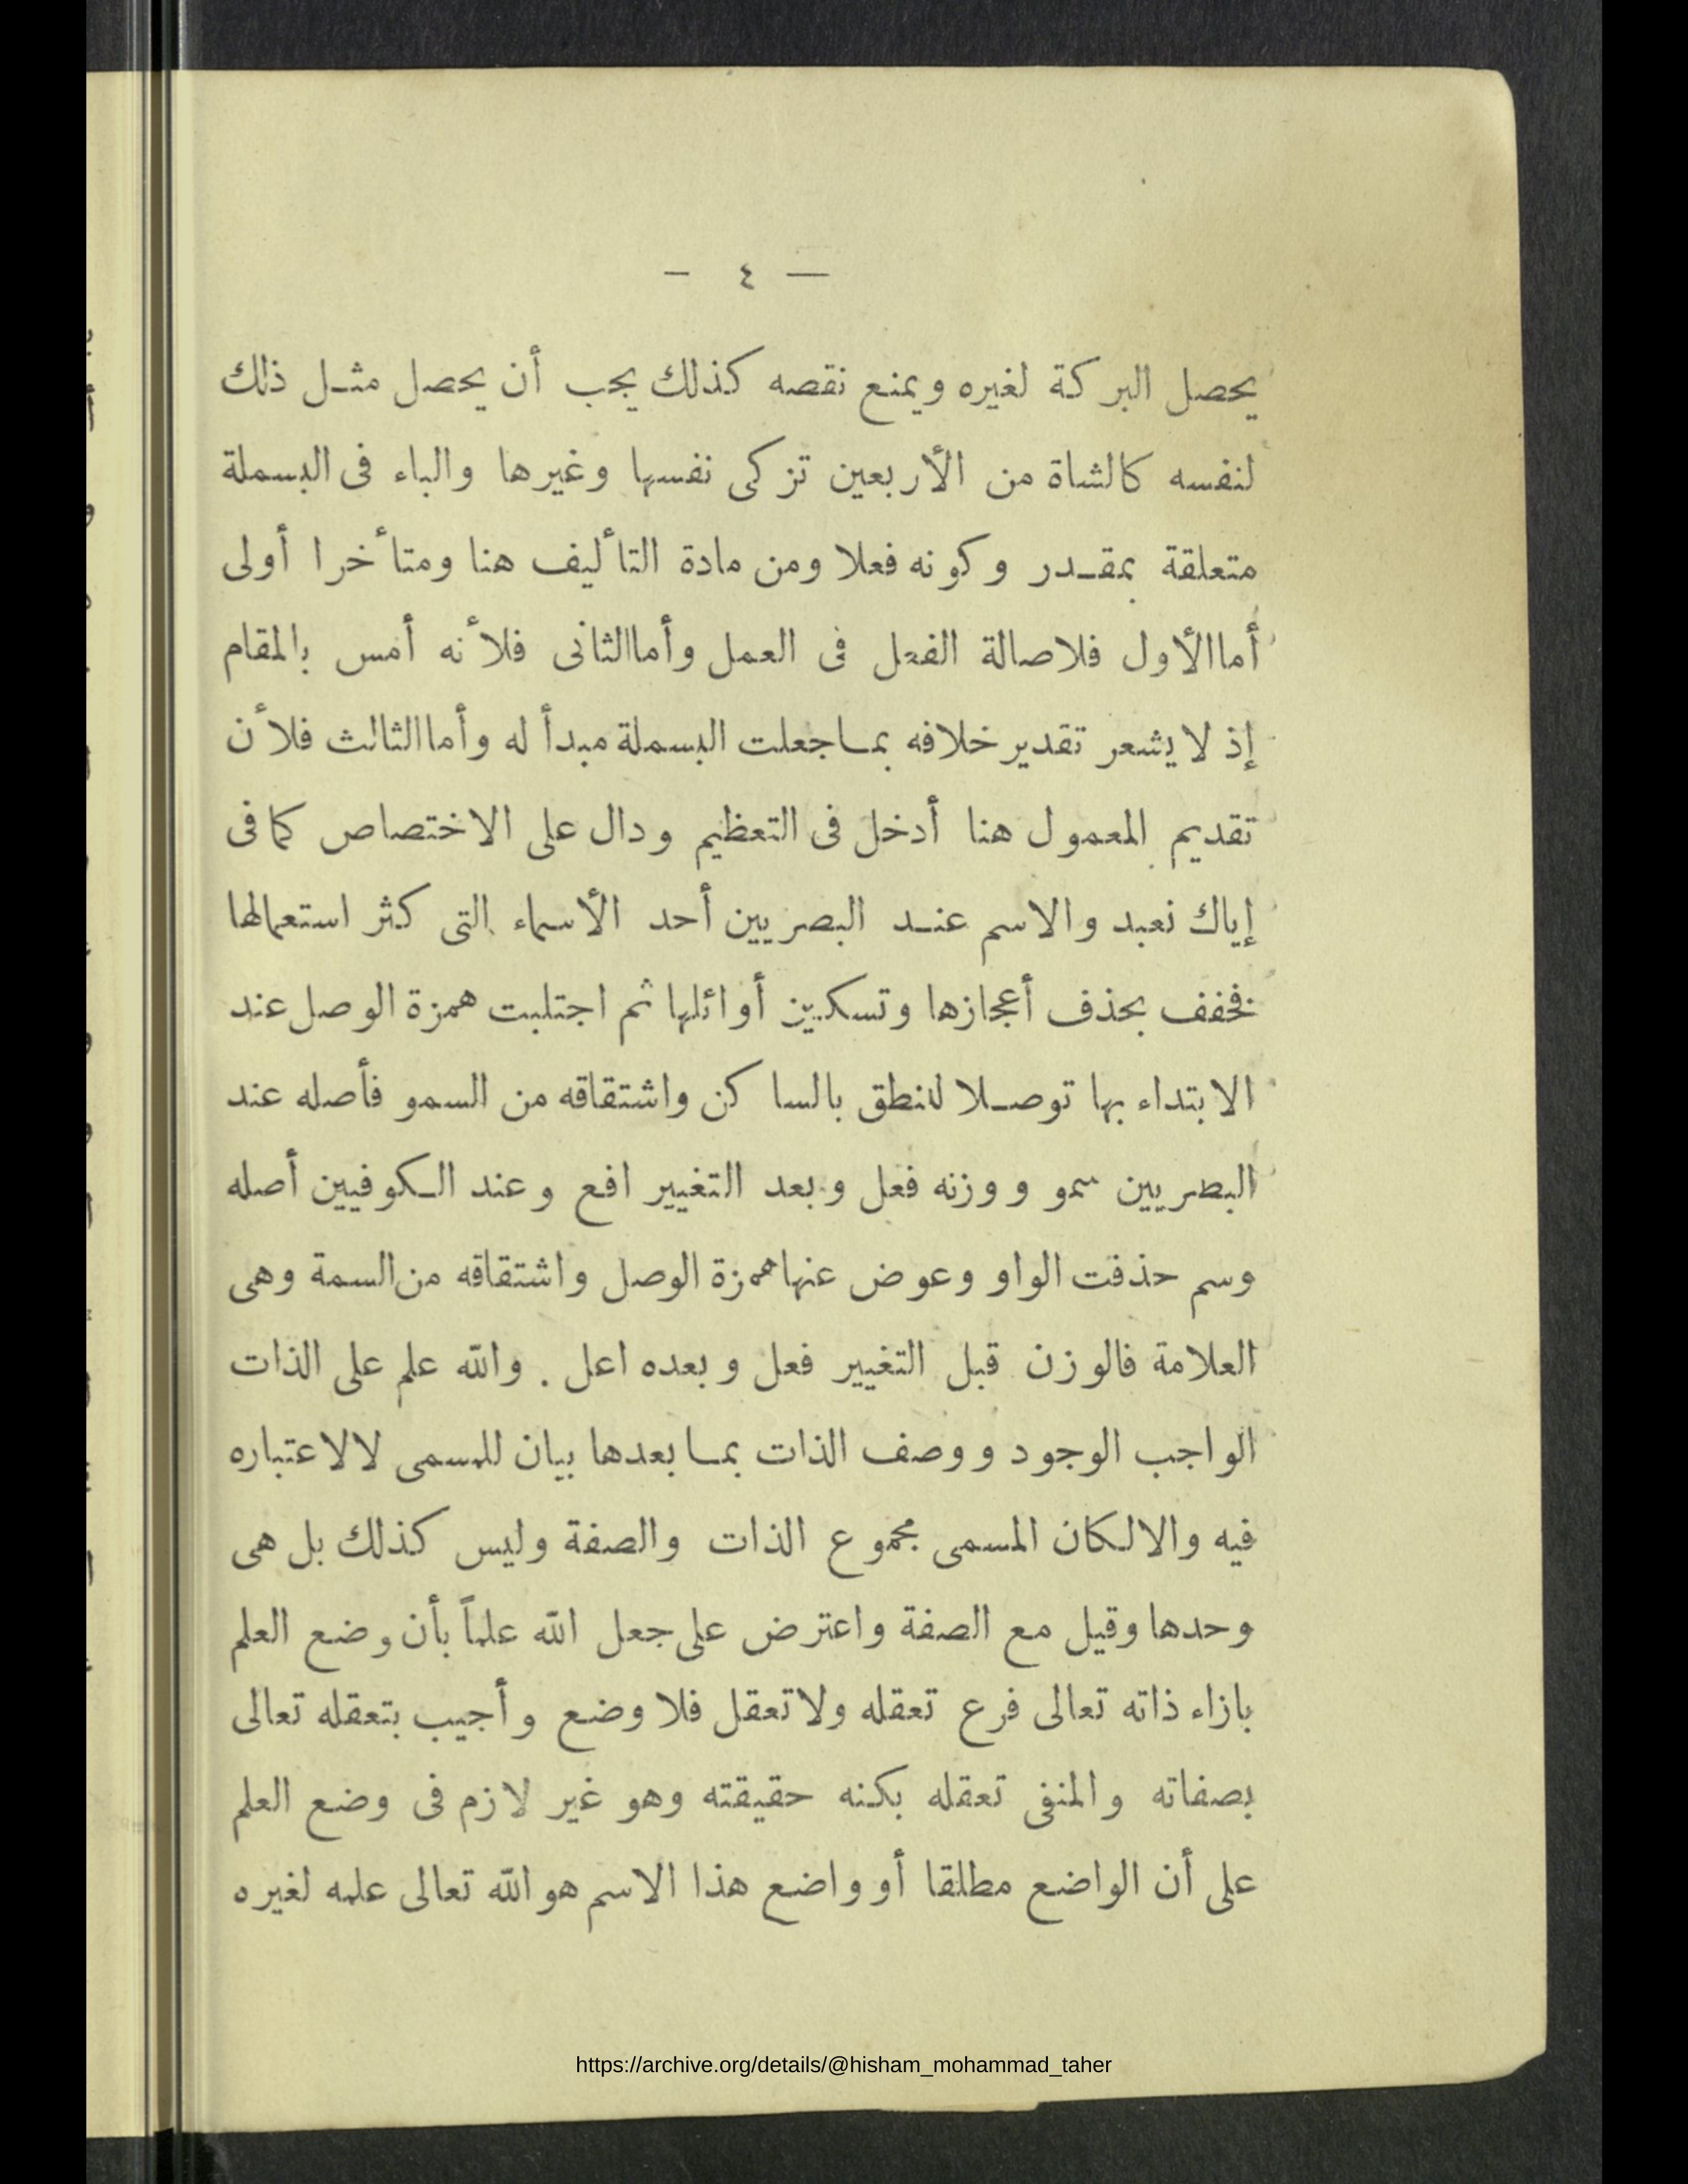 — ٤ —
يحصل البركة لغيره ويمنع نقصه كذلك يجب أن يحصل مثل ذلك
لنفسه كالشاة من الأربعين تزكى نفسها وغيرها والباء فى البسملة
متعلقة بمقدر وكونه فعلا ومن مادة التأليف هنا ومتأخرا أولى
أما الأول فلاصالة الفعل فى العمل وأما الثانى فلأنه أمس بالمقام
إذ لا يشعر تقدير خلافه بما جعلت البسملة مبدأ له وأما الثالث فلأن
تقديم المعمول هنا أدخل فى التعظيم ودال على الاختصاص كما فى
إياك نعبد والاسم عند البصريين أحد الأسماء التى كثر استعمالها
فخفف بحذف أعجازها وتسكين أوائلها ثم اجتلبت همزة الوصل عند
الابتداء بها توصلا للنطق بالساكن واشتقاقه من السمو فأصله عند
البصريين سمو ووزنه فعل وبعد التغيير افع وعند الكوفيين أصله
وسم حذفت الواو وعوض عنها همزة الوصل واشتقاقه من السمة وهى
العلامة فالوزن قبل التغيير فعل وبعده اعل . والله علم على الذات
الواجب الوجود ووصف الذات بما بعدها بيان للمسمى لا لاعتباره
فيه والا لكان المسمى مجموع الذات والصفة وليس كذلك بل هى
وحدها وقيل مع الصفة واعترض على جعل الله علماً بأن وضع العلم
بازاء ذاته تعالى فرع تعقله ولا تعقل فلا وضع وأجيب بتعقله تعالى
بصفاته والمنفى تعقله بكنه حقيقته وهو غير لازم فى وضع العلم
على أن الواضع مطلقا أو واضع هذا الاسم هو الله تعالى علمه لغيره
https://archive.org/details/@hisham_mohammad_taher